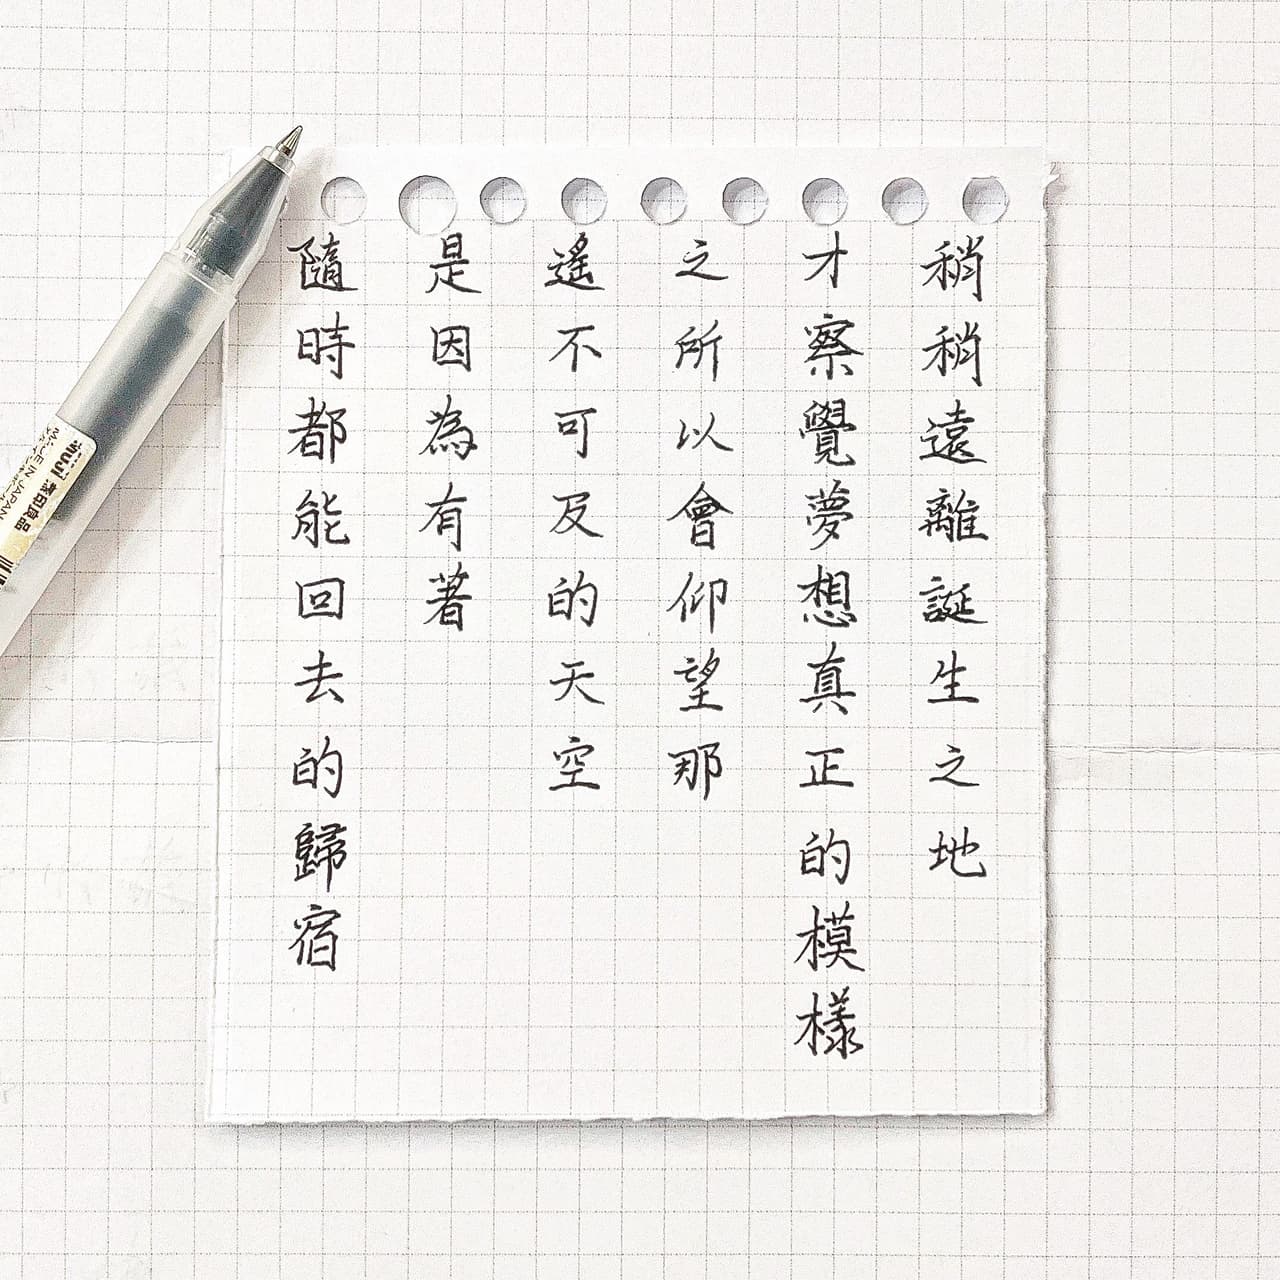 稍稍遠離誕生之地
才察覺夢想真正的模樣
之所以會仰望那
遙不可及的天空
是因為有著
隨時都能回去的歸宿
MUJI 無印良品
MADE IN JAPAN